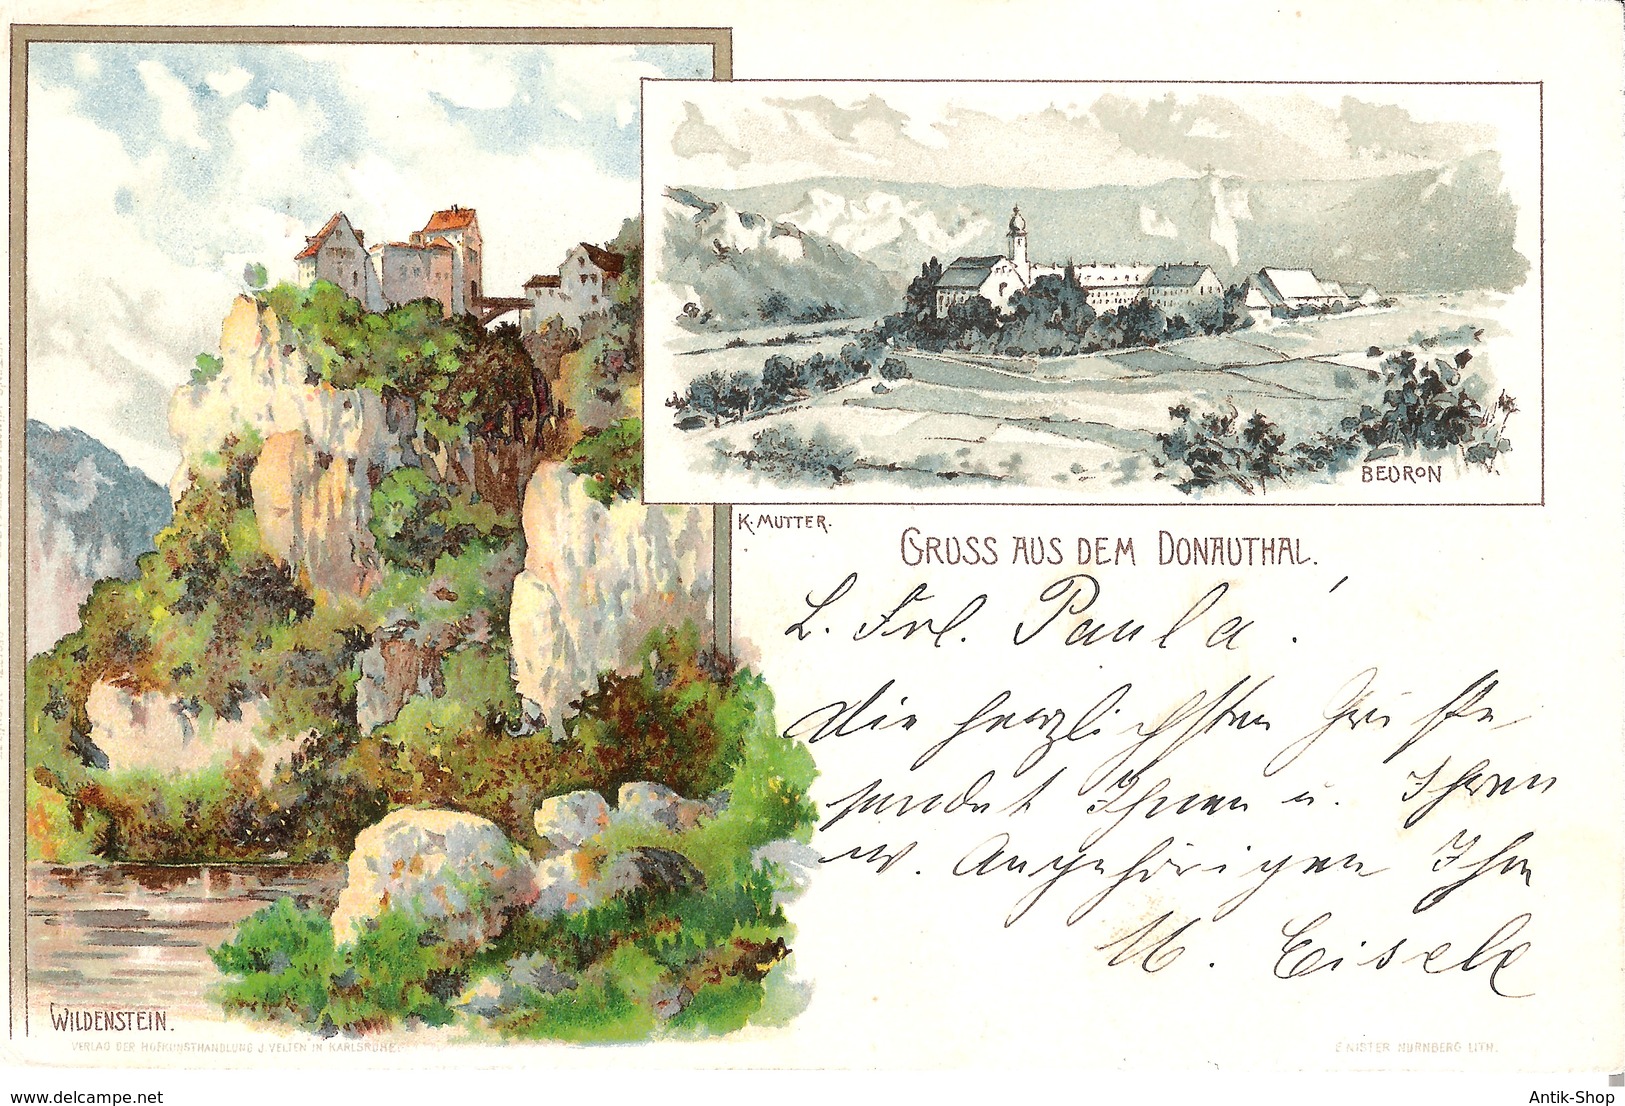 BEURON
K. MUTTER.
GRUSS AUS DEM DONAUTHAL.
L. Frl. Paula!
Die herzlichsten Grüsse
sendet Ihnen u. Ihren
w. Angehörigen Ihr
M. Eisele
WILDENSTEIN.
VERLAG DER HOFKUNSTHANDLUNG J. VELTEN IN KARLSRUHE.
E NISTER NÜRNBERG LITH.
www.delcampe.net
Antik-Shop